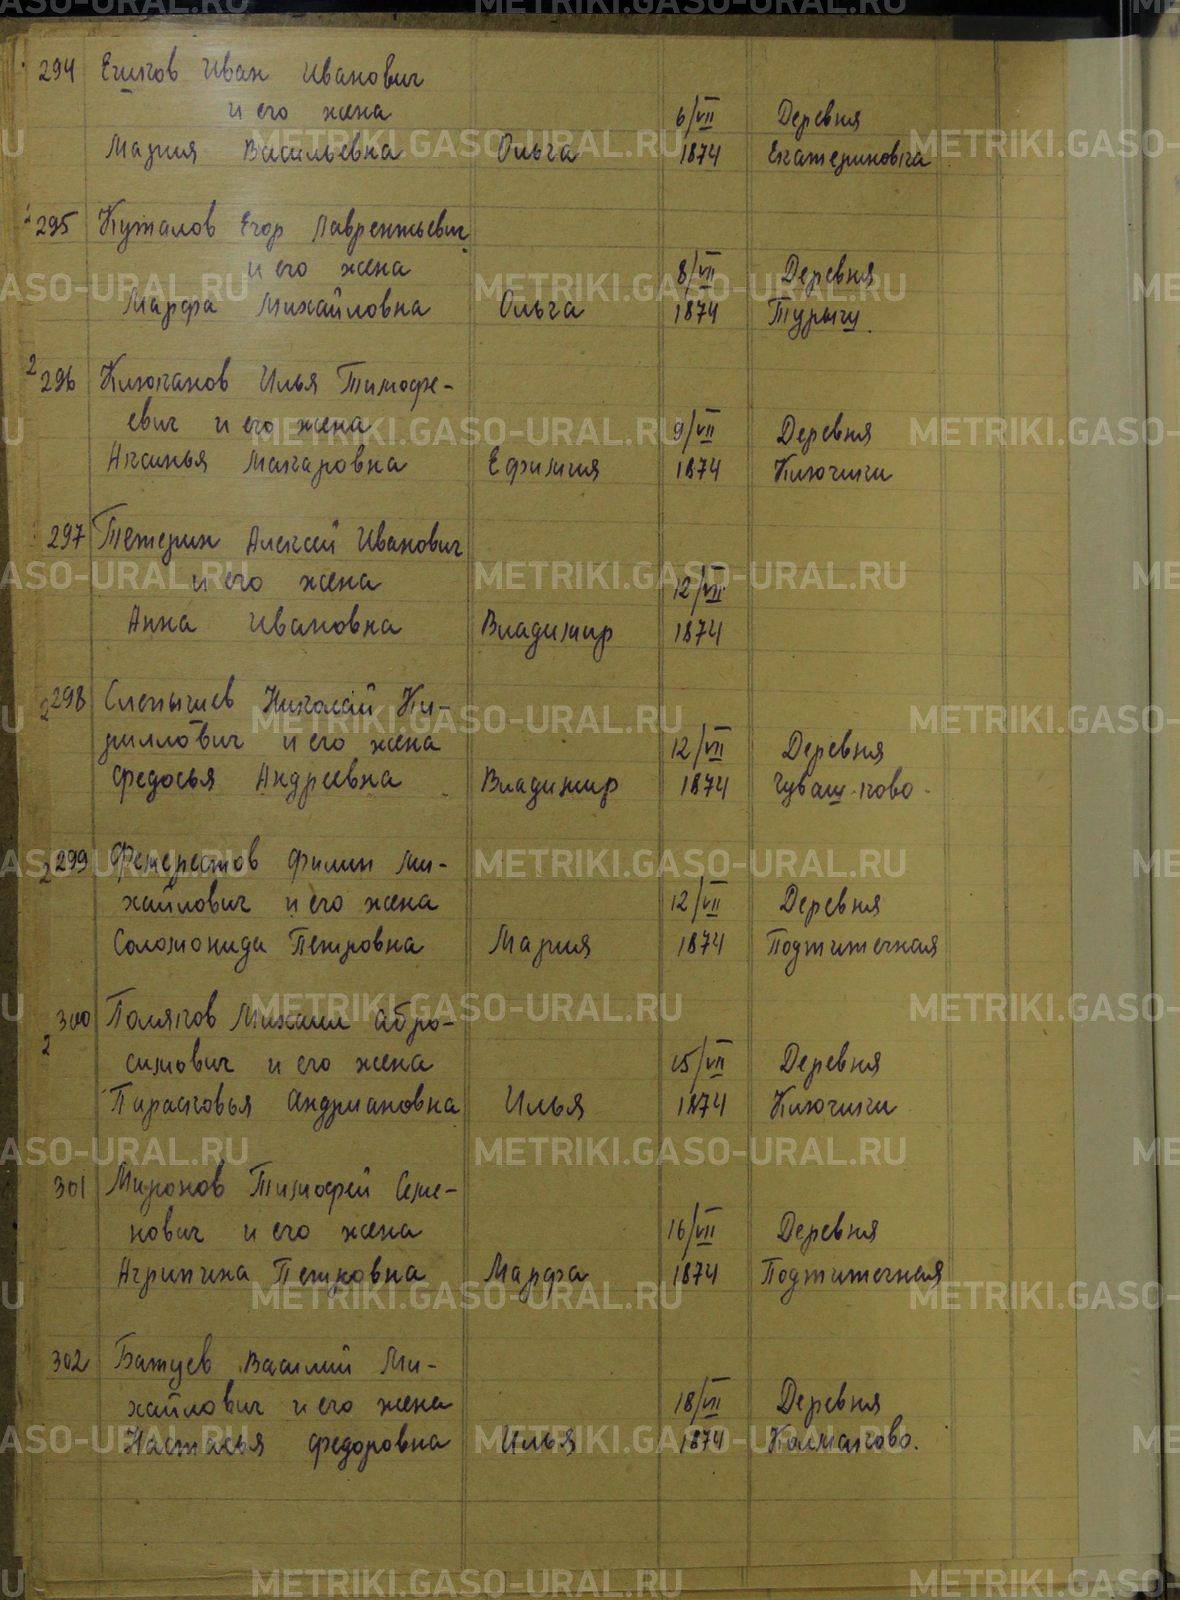 294 Ешков Иван Иванович
и его жена 6/VII Деревня
Мария Васильевна Ольга 1874 Екатериновка
295 Куталов Егор Лаврентьевич
и его жена 8/VII Деревня
Марфа Михайловна Ольга 1874 Турыш.
2 296 Ключанов Илья Тимофе-
евич и его жена 9/VII Деревня
Аксинья Макаровна Ефимия 1874 Ключики
297 Тетерин Алексей Иванович
и его жена 12/VII
Анна Ивановна Владимир 1874
2 298 Слепышев Николай Ки-
риллович и его жена 12/VII Деревня
Федосья Андреевна Владимир 1874 Чувашково.
2 299 Филип Ми-
хайлович и его жена 12/VII Деревня
Соломонида Петровна Мария 1874 Подтитечная
2 300 Поляков Михаил Абро-
симович и его жена 15/VII Деревня
Парасковья Андриановна Илья 1874 Ключики
301 Миронов Тимофей Семе-
нович и его жена 16/VII Деревня
Агрипина Петровна Марфа 1874 Подтитечная
302 Батуев Василий Ми-
хайлович и его жена 18/VII Деревня
Настасья Федоровна Илья 1874 Колмаково.
METRIKI.GASO-URAL.RU